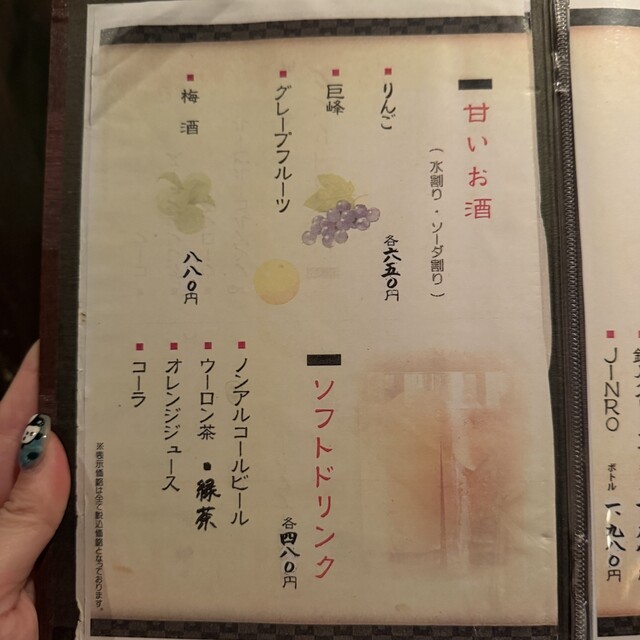 甘いお酒
（水割り・ソーダ割り）
りんご
巨峰
グレープフルーツ
各六五〇円
梅酒
八八〇円
ソフトドリンク
各四八〇円
ノンアルコールビール
ウーロン茶・緑茶
オレンジジュース
コーラ
※表示価格は全て税込価格となっております。
JINRO ボトル 一、九八〇円